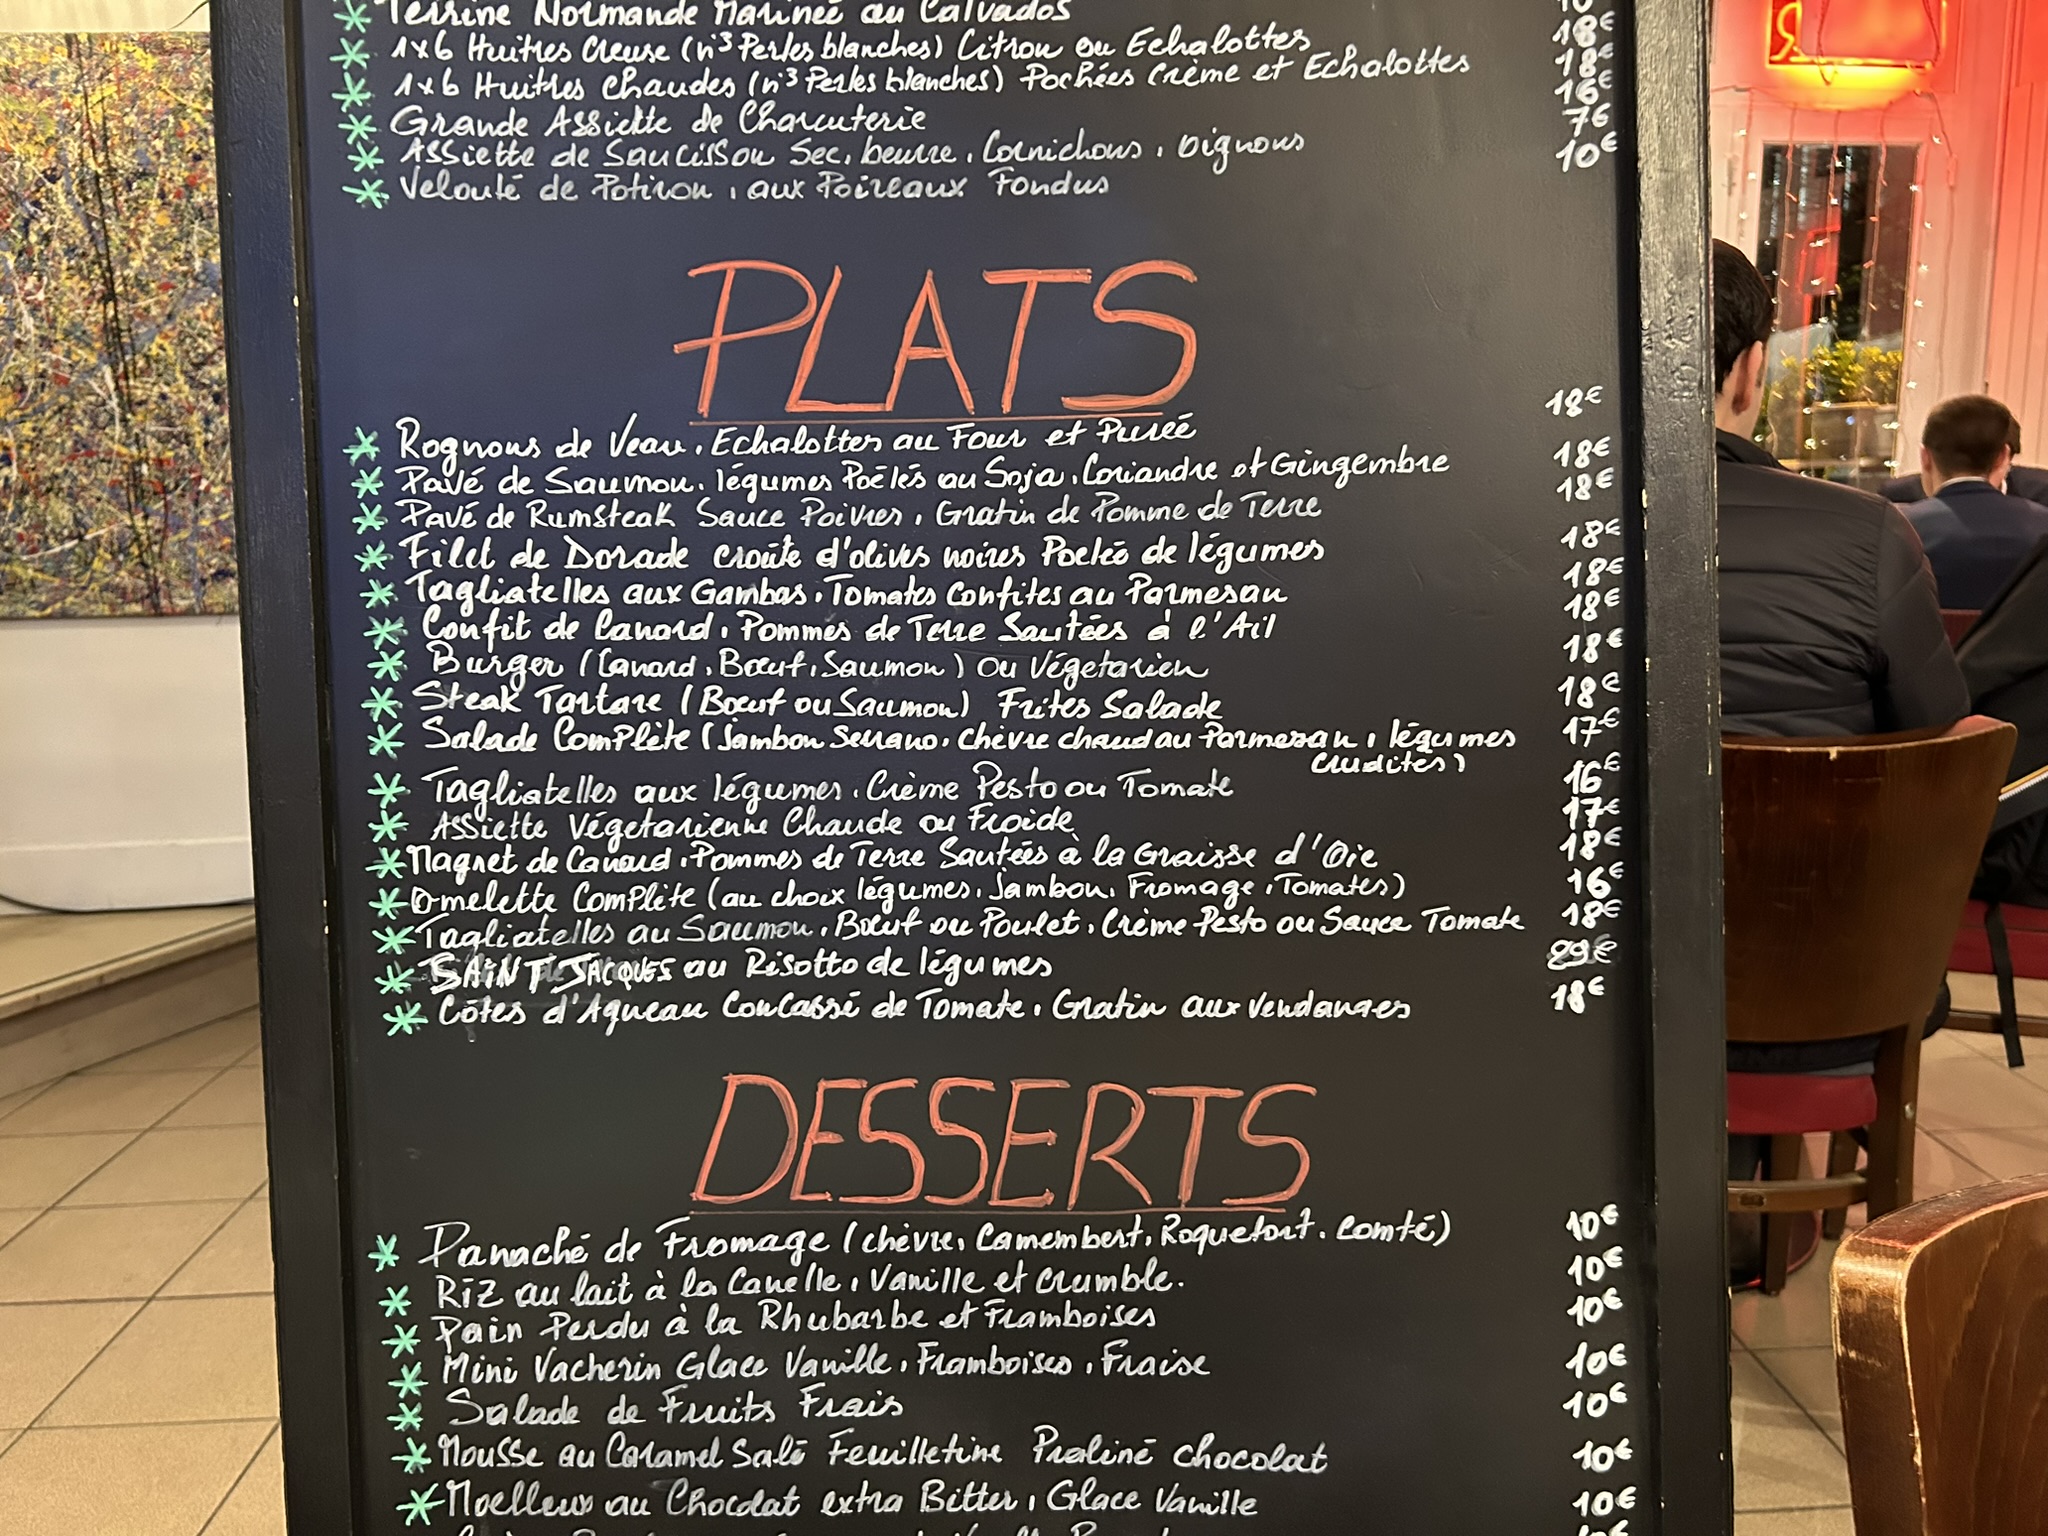 Terrine Normande Marinée au Calvados
1x6 Huitres Creuse (n°3 Perles blanches) Citron ou Echalottes 18€
1x6 Huitres Chaudes (n°3 Perles blanches) Pochées Crème et Echalottes 18€
Grande Assiette de Charcuterie 16€
Assiette de Saucisson Sec, beurre, Cornichons, oignons 7€
Velouté de Potiron, aux Poireaux Fondus 10€
PLATS
Rognons de Veau, Echalottes au Four et Purée 18€
Pavé de Saumon, légumes Poêlés au Soja, Coriandre et Gingembre 18€
Pavé de Rumsteak Sauce Poivres, Gratin de Pomme de Terre 18€
Filet de Dorade croûte d'olives noires Poêléé de légumes 18€
Tagliatelles aux Gambas, Tomates Confites au Parmesan 18€
Confit de Canard, Pommes de Terre Sautées à l'Ail 18€
Burger (Canard, Bœuf, Saumon) ou Végetarien 18€
Steak Tartare (Bœuf ou Saumon) Frites Salade 18€
Salade Complète (Jambon Serrano, chèvre chaud au Parmesan, légumes 17€
crudités)
Tagliatelles aux légumes, Crème Pesto ou Tomate 16€
Assiette Végetarienne Chaude ou Froide 17€
Magret de Canard, Pommes de Terre Sautées à la Graisse d'Oie 18€
Omelette Complète (au choix légumes, Jambon, Fromage, Tomates) 16€
Tagliatelles au Saumon, Bœuf ou Poulet, Crème Pesto ou Sauce Tomate 18€
SAINT JACQUES au Risotto de légumes
Côtes d'Agneau Concassé de Tomate, Gratin aux Vendanges 18€
DESSERTS
Panaché de Fromage (chèvre, Camembert, Roquefort, Comté) 10€
Riz au lait à la Canelle, Vanille et crumble. 10€
Pain Perdu à la Rhubarbe et Framboises 10€
Mini Vacherin Glace Vanille, Framboises, Fraise 10€
Salade de Fruits Frais 10€
Mousse au Caramel Salé Feuilletine Praliné chocolat 10€
Moelleux au Chocolat extra Bitter, Glace Vanille 10€